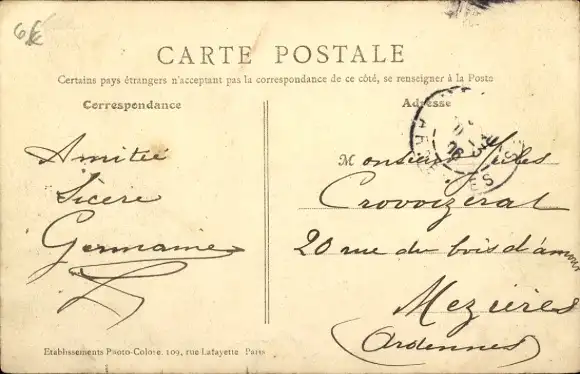 6€
CARTE POSTALE
Certains pays étrangers n'acceptant pas la correspondance de ce côté, se renseigner à la Poste
Correspondance
Adresse
Amitié
Sicère
Germaine
Monsieur Jules
Crovoizerat
20 rue du bois d'amour
Mezières
(Ardennes)
Etablissements Photo-Color. 109, rue Lafayette Paris